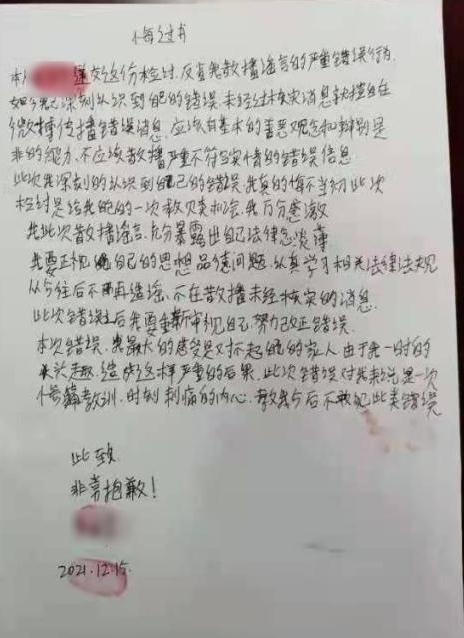 悔过书
本人 递交这份检讨,反省我散播谣言的严重错误行为,
如今我已深刻认识到自己的错误,未经过核实消息就擅自在
微博传播错误消息,应该有基本的善恶观念和辨别是
非的能力,不应该散播严重不符合实情的错误信息
此次我深刻的认识到自己的错误,我真的悔不当初此次
检讨是给我自己的一次教赎机会,我万分感激
我此次散播谣言,充分暴露出自己法律意识淡薄
我要正视自己的思想品德问题,认真学习相关法律法规
从今往后不再造谣,不在散播未经核实的消息.
此次错误之后我要重新审视自己,努力改正错误.
本次错误,我最大的感受是对不起我的家人由于我一时的
兴趣,造成这样严重的后果,此次错误对我来说是一次
悔教训,时刻刺痛的内心,教我今后不敢犯此类错误
此致
非常抱歉!
2021.12.15.